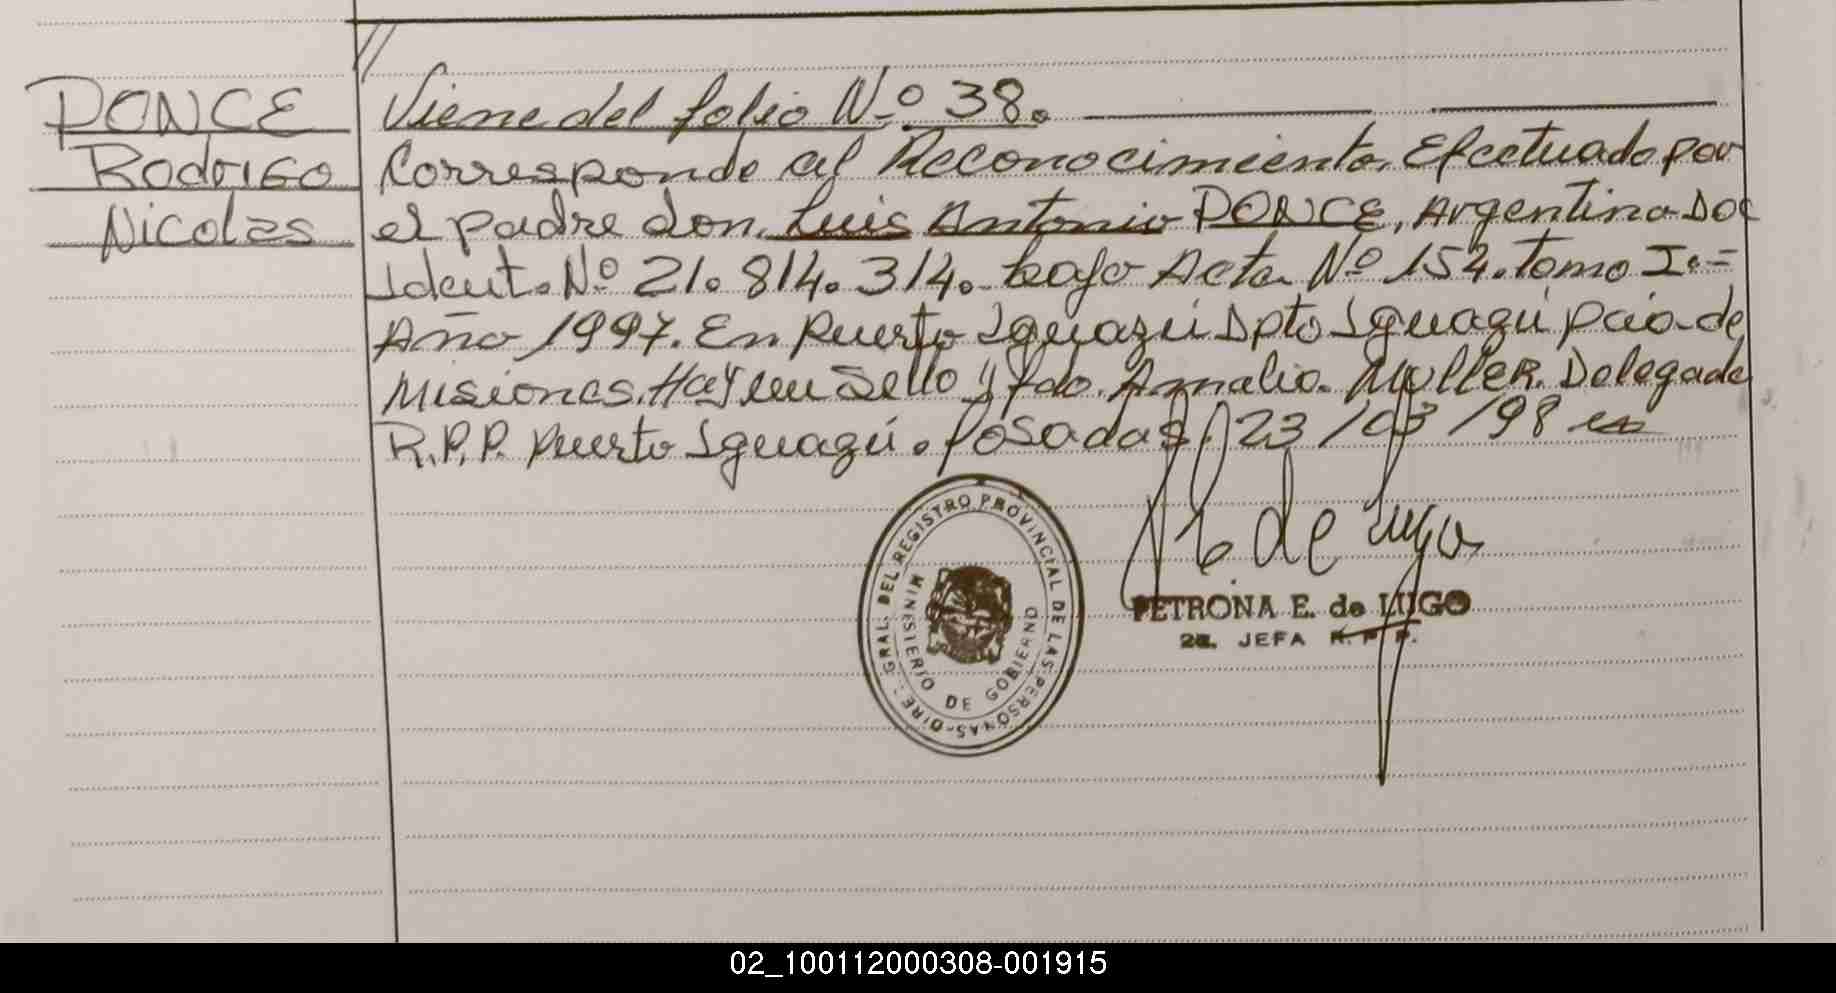 //
PONCE
Rodrigo
Nicolas
Viene del folio Nº 38.
Corresponde al Reconocimiento. Efectuado por
el padre don. Luis Antonio PONCE, Argentino Doc
Ident. Nº 21.814.314. bajo Acta Nº 154. Tomo I.=
Año 1997. En Puerto Iguazú Dpto Iguazú Pcia de
Misiones. Hay un Sello y fdo. Amalia. Muller. Delegada
R.P.P. Puerto Iguazú. Posadas, 23/03/98
de Lugo
PETRONA E. de LUGO
2a. JEFA R. P. P.
DIRE. GRAL. DEL REGISTRO PROVINCIAL DE LAS PERSONAS
MINISTERIO DE GOBIERNO
02_100112000308-001915